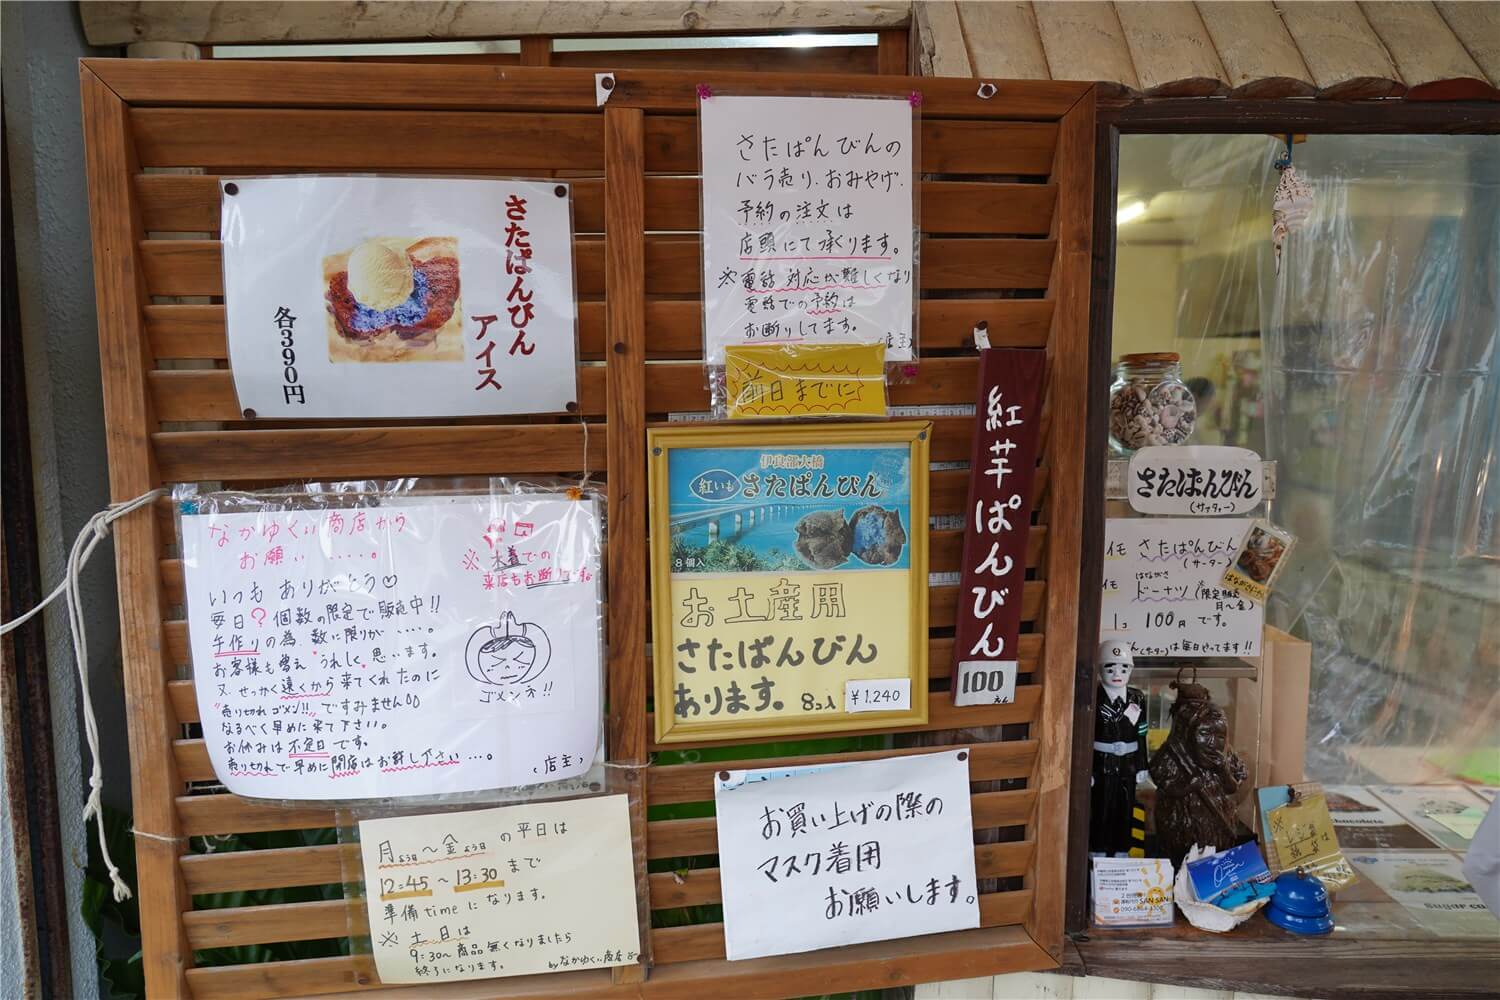 さたぱんびん
アイス
各390円
さたぱんびんの
バラ売り、おみやげ、
予約の注文は
店頭にて承ります。
※電話対応が難しくなり
電話での予約は
お断りしてます。
(店主)
前日までに
紅芋ぱんびん
100えん
伊良部大橋
紅いも さたぱんびん
8個入
お土産用
さたぱんびん
あります。8コ入
¥1,240
なかゆくい商店から
お願い……。
※水着での
来店もお断りです
いつもありがとう♡
毎日?個数の限定で販売中!!
手作りの為、数に限りが……。
お客様も増え"うれしく"思います。
又、せっかく遠くから来てくれたのに
"売り切れゴメン!!"ですみません
なるべく早めに来て下さい。
お休みは不定日です。
売り切れで早めに閉店はお許し下さい…。
(店主)
ゴメンネ!!
月よう日~金よう日の平日は
12:45~13:30まで
準備timeになります。
※土日は
9:30~商品無くなりましたら
終了になります。
byなかゆくい商店
お買い上げの際の
マスク着用
お願いします。
さたぱんびん
(サァターー)
イモ さたぱんびん
(サーター)
はながさ
イモ ドーナツ(限定販売
月~金)
1コ 100円です。
(サーター)は毎日やってます!!
はながさドーナツ
SAN SAN
※レジ袋は
Chocolate
Sugar